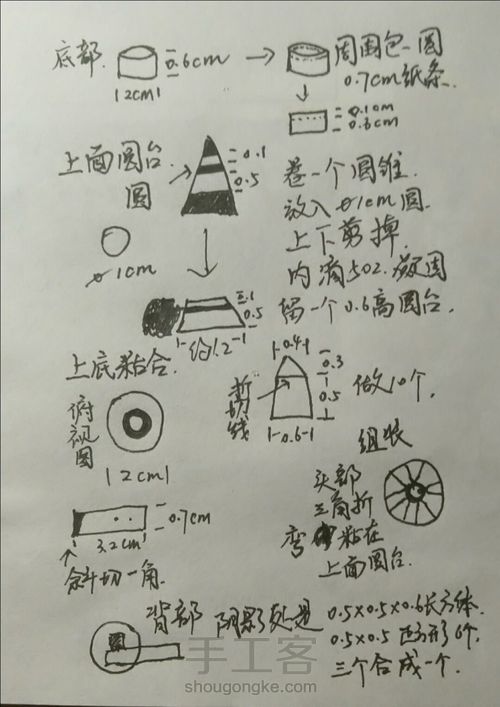 底部.
0.6cm
12cm1
周围包一圈
0.7cm纸条.
0.1cm
0.6cm
上面圆台.
圆
ø1cm
0.1
0.5
卷一个圆锥
放入ø1cm圆.
上下剪掉.
内滴502.凝固
留一个0.6高圆台.
.1
0.5
1-约1.2-1
上底粘合.
俯视图
12cm1
剪切线
1-0.4-1
0.3
0.5
1-0.6-1
做10个.
组装
头部
三角折
弯 粘在
上面圆台.
0.7cm
3.2cm
斜切一角.
背部 阴影处是
0.5x0.5x0.6长方体.
0.5x0.5正方形6个.
三个合成一个.
手工客
shougongke.com